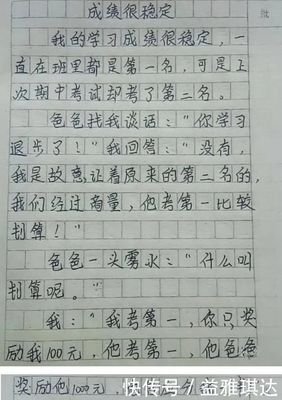 成绩很稳定
批
我的学习成绩很稳定，一
直在班里都是第一名，可是上
次期中考试却考了第二名。
爸爸找我谈话：“你学习
退步了！”我回答：“没有，
我是故意让着原来的第二名的，
我们经过商量，他考第一比较
划算！”
爸爸一头雾水：“什么叫
划算呢。”
我：“我考第一，你只奖
励我100元，他考第一，他爸爸
奖励他1000元，
快传号／益雅琪达